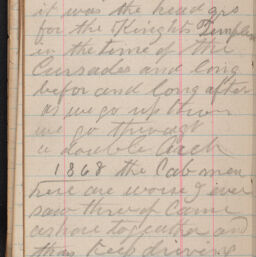 it was the head qrs
for the Knights Templer
in the time of the
Cursades and long
befor and long after
as we go up town
we go through
a double Arch
1868 the Cab men
here are worse I ever
saw three of came
ashore together and
thay keep driving